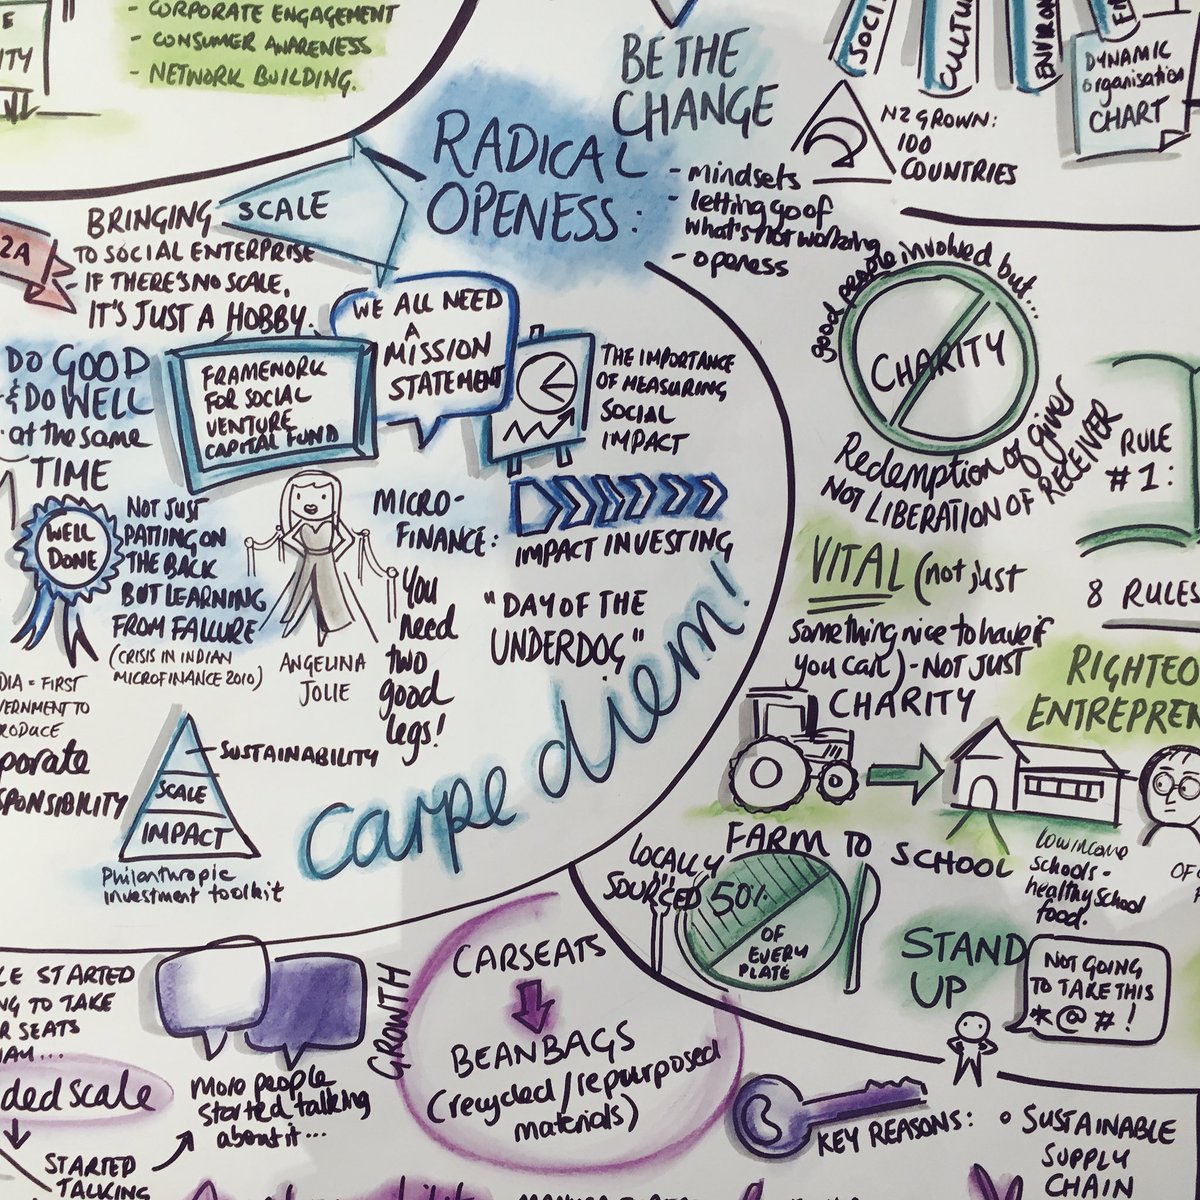 - CORPORATE ENGAGEMENT
- CONSUMER AWARENESS
- NETWORK BUILDING.
BE THE
CHANGE
RADICAL
OPENESS:
- mindsets
- letting go of
what's not working
- openess
NZ GROWN:
100
COUNTRIES
DYNAMIC
organisation
CHART
BRINGING SCALE
TO SOCIAL ENTERPRISE
- IF THERE'S NO SCALE,
IT'S JUST A HOBBY.
DO GOOD
& DO WELL
at the same
TIME
FRAMENORK
FOR SOCIAL
VENTURE
CAPITAL FUND
WE ALL NEED
A
MISSION
STATEMENT
THE IMPORTANCE
OF MEASURING
SOCIAL
IMPACT
IMPACT INVESTING
WELL
DONE
NOT JUST
PATTING ON
THE BACK
BUT LEARNING
FROM FAILURE
(CRISIS IN INDIAN
MICROFINANCE 2010)
ANGELINA
JOLIE
MICRO-
FINANCE:
You
need
two
good
legs!
"DAY OF THE
UNDERDOG"
carpe diem!
DIA = FIRST
VERNMENT TO
RODUCE
porate
SPONSIBILITY
SUSTAINABILITY
SCALE
IMPACT
Philanthropic
investment toolkit
good people involved but...
CHARITY
Redemption of giver
NOT LIBERATION OF RECEIVER
RULE
#1:
8 RULES
VITAL (not just
something nice to have if
you can) - NOT JUST
CHARITY
RIGHTEO
ENTREPREN
FARM TO SCHOOL
Low income
schools -
healthy school
food.
LOCALLY
SOURCED
50%
OF
EVERY
PLATE
STAND
UP
NOT GOING
TO TAKE THIS
*@#!
LE STARTED
NG TO TAKE
R SEATS
ded scale
STARTED
TALKING
More people
started talking
about it...
GROWTH
CARSEATS
BEANBAGS
(recycled/repurposed
materials)
KEY REASONS:
• SUSTAINABLE
SUPPLY
CHAIN